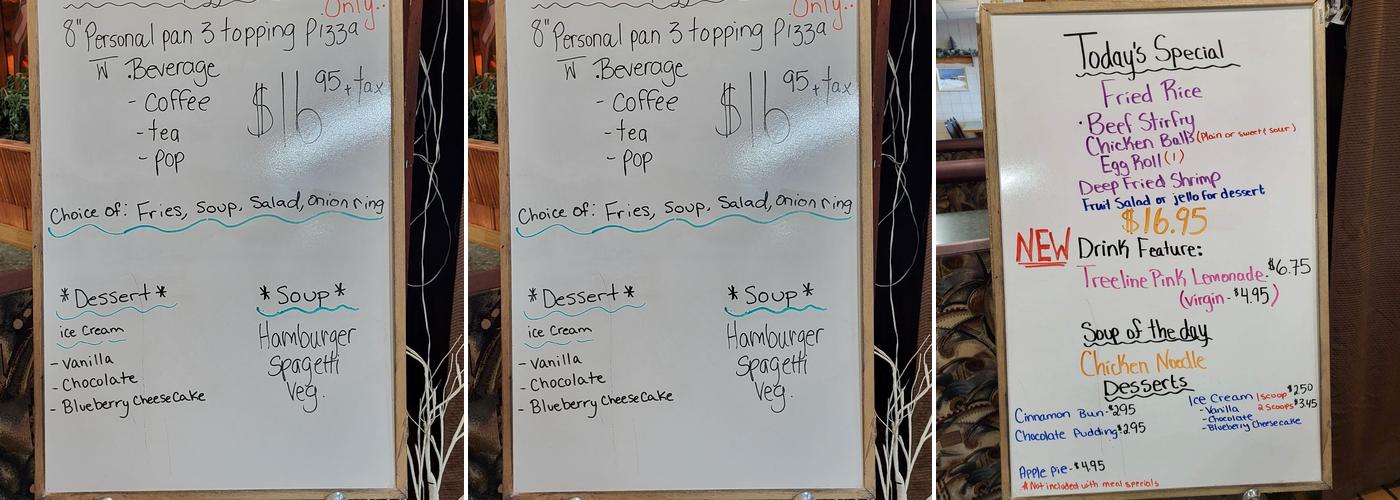 Only..
8" Personal pan 3 topping Pizza
W .Beverage
- Coffee
- tea
- pop
$16 95 + tax
Choice of: Fries, Soup, Salad, onion ring
* Dessert *
ice Cream
- Vanilla
- Chocolate
- Blueberry Cheese Cake
* Soup *
Hamburger
Spagetti
Veg.
Only..
8" Personal pan 3 topping Pizza
W .Beverage
- Coffee
- tea
- pop
$16 95 + tax
Choice of: Fries, Soup, Salad, onion ring
* Dessert *
ice Cream
- Vanilla
- Chocolate
- Blueberry Cheese Cake
* Soup *
Hamburger
Spagetti
Veg.
Today's Special
Fried Rice
· Beef Stirfry
Chicken Balls (Plain or sweet & sour)
Egg Roll (1)
Deep Fried Shrimp
Fruit Salad or jello for dessert
$16.95
NEW Drink Feature:
Treeline Pink Lemonade - $6.75
(virgin - $4.95)
Soup of the day
Chicken Noodle
Desserts
Cinnamon Bun - $2.95
Chocolate Pudding $2.95
Apple Pie - $4.95
* Not included with meal specials
Ice Cream 1 scoop $2.50
- Vanilla 2 Scoops $3.45
- Chocolate
- Blueberry Cheesecake